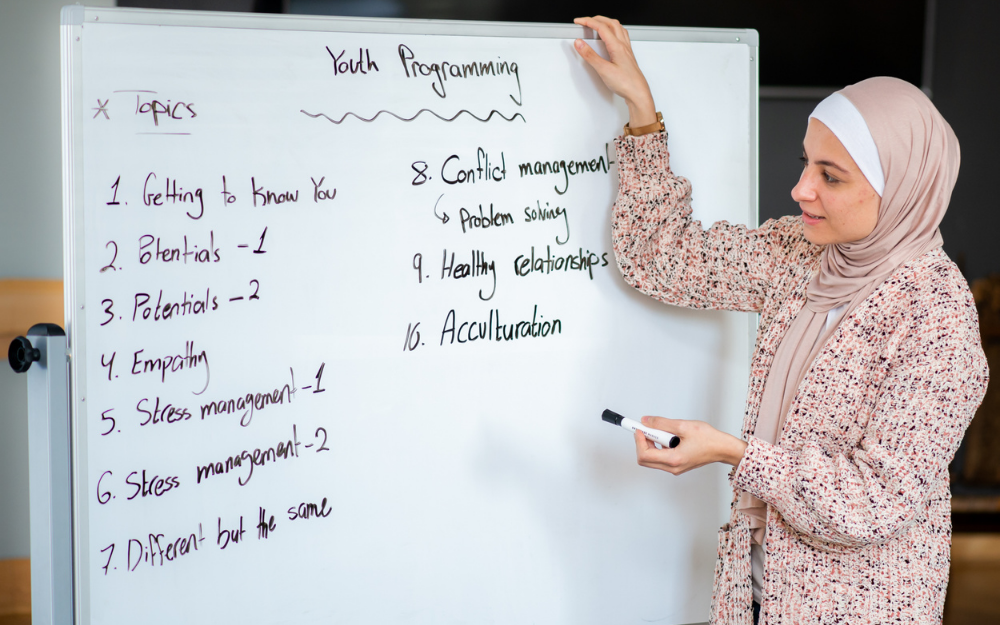 Youth Programming
* Topics
1. Getting to Know You
2. Potentials -1
3. Potentials -2
4. Empathy
5. Stress management -1
6. Stress management -2
7. Different but the same
8. Conflict management
↳ Problem solving
9. Healthy relationships
10. Acculturation